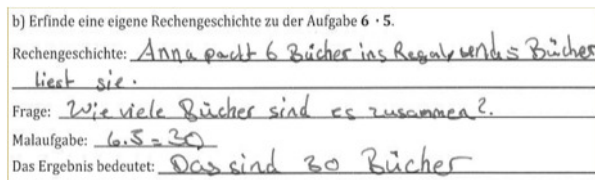 b) Erfinde eine eigene Rechengeschichte zu der Aufgabe 6 · 5.
Rechengeschichte: Anna packt 6 Bücher ins Regal, und 5 Bücher
liest sie.
Frage: Wie viele Bücher sind es zusammen?.
Malaufgabe: 6.5=30
Das Ergebnis bedeutet: Das sind 30 Bücher